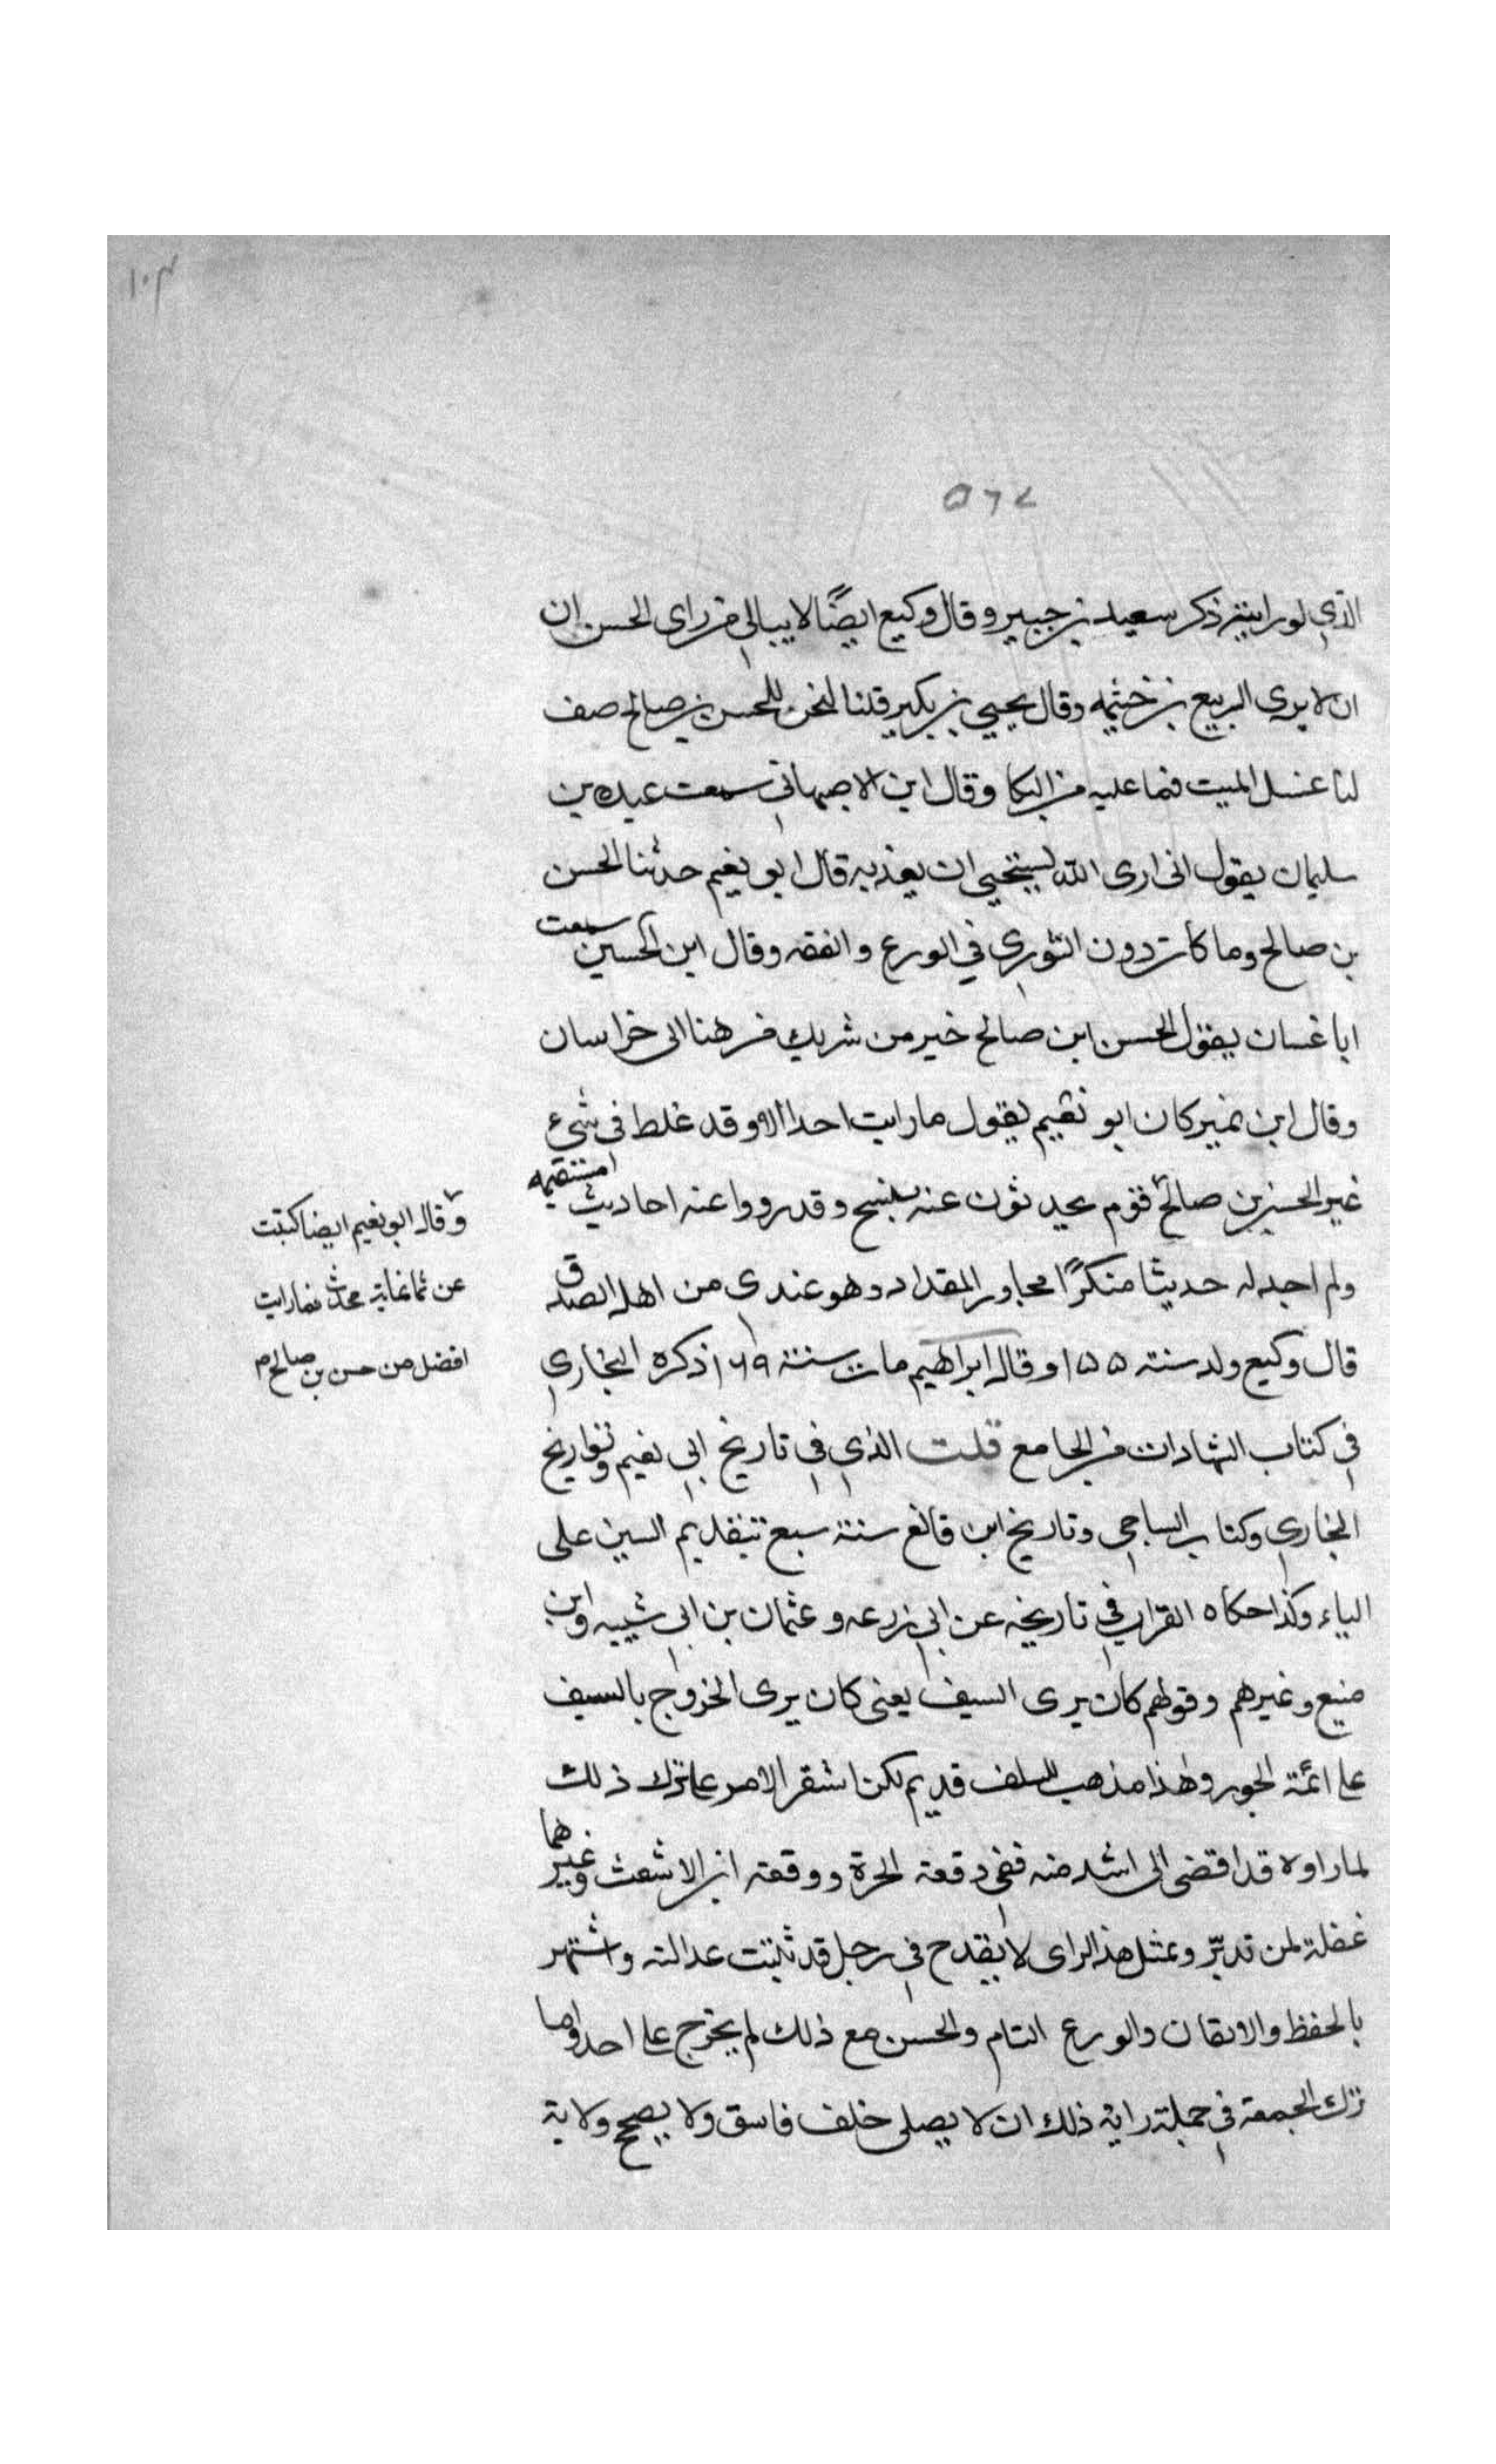 ١٠٣
٥٦٧
الذي لورايته ذكر سعيد بن جبير وقال وكيع ايضًا لا يبالي من راى الحسن ان
ان لا يرى الربيع بن خثيمه وقال يحيي بن بكير قلنا نحن للحسن بن صالح صف
لنا غسل الميت فما عليه من البكا وقال ابن الاصبهاني سمعت عبده بن
سليمان يقول انى ارى الله يستحيي ان يعذبه قال ابو نعيم حدثنا الحسن
بن صالح وما كان دون الثوري في الورع والفقه وقال ابن الحسين سمعت
ابا غسان يقول الحسن ابن صالح خير من شريك من هنا الى خراسان
وقال ابن نمير كان ابو نعيم يقول ما رايت احدا الا وقد غلط فى شيء
غير الحسن بن صالح قوم يحدثون عنه بنسخ وقد رووا عنه احاديث مستقيمه
ولم اجد له حديثا منكرًا مجاوز المقدار وهو عندى من اهل الصدق
قال وكيع ولد سنته ١٥٥ وقال ابراهيم مات سنته ١٦٩ ذكره البخاري
في كتاب الشهادات من الجامع قلت الذي في تاريخ ابي نعيم وتواريخ
البخاري وكتاب الساجي وتاريخ ابن قانع سنة سبع بتقديم السين على
الباء وكذا حكاه القراب في تاريخه عن ابي زرعه وعثمان بن ابى شيبه وابن
منيع وغيرهم وقولهم كان يرى السيف يعنى كان يرى الخروج بالسيف
على ائمة الجور وهذا مذهب للسلف قديم لكن استقر الامر على ترك ذلك
لما راوه قد افضى الى اشد منه ففى وقعة الحرة ووقعة ابن الاشعث وغيرهما
عظة لمن تدبّر وبمثل هذا الراى لا يقدح فى رجل قد ثبتت عدالته واشتهر
بالحفظ والاتقان والورع التام والحسن مع ذلك لم يخرج على احد واما
ترك الجمعة في جملة رايه ذلك ان لا يصلى خلف فاسق ولا يصحح ولاية
وقال ابو نعيم ايضا كتبت
عن ثمانمايه محدث فما رايت
افضل من حسن بن صالح م